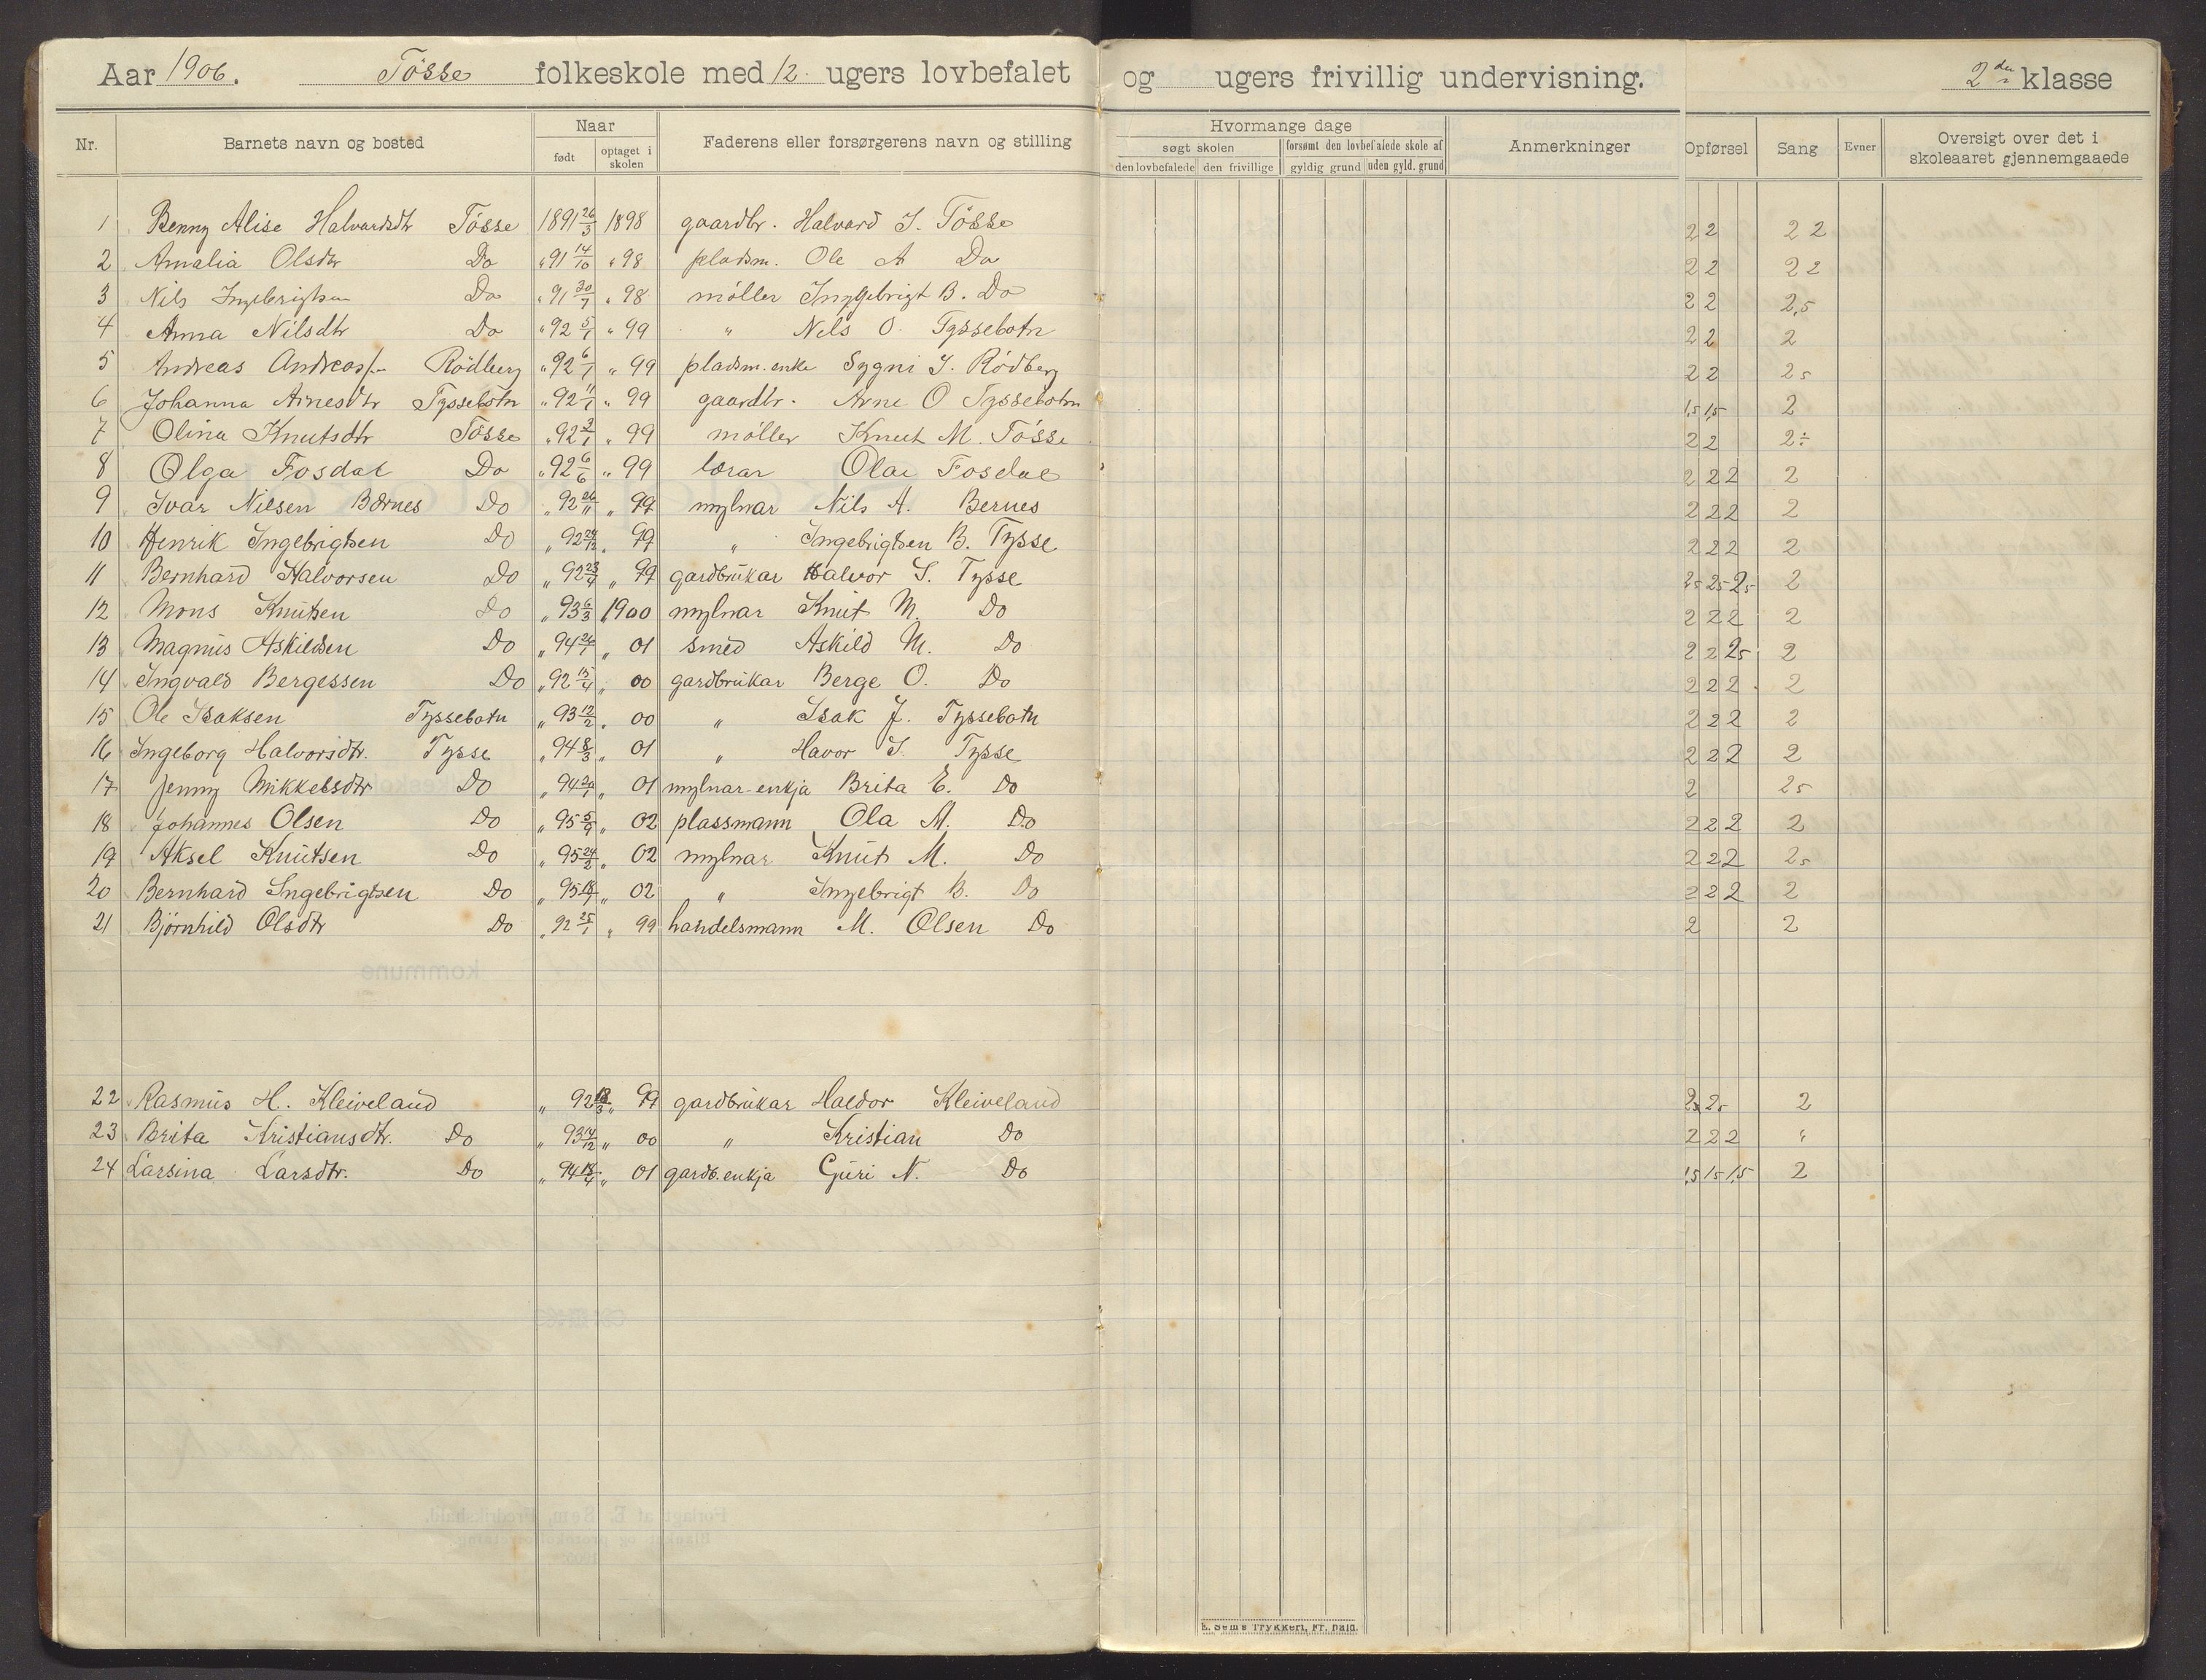 Aar 1906. Tösse folkeskole med 12. ugers lovbefalet og ugers frivillig undervisning. 2den klasse
Nr. Barnets navn og bosted Naar født optaget i skolen Faderens eller forsørgerens navn og stilling Hvormange dage søgt skolen den lovbefalede den frivillige forsømt den lovbefalede skole af gyldig grund uden gyld. grund Anmerkninger Opførsel Sang Evner Oversigt over det i skoleaaret gjennemgaaede
1 Benny Alise Halvardsdtr Tösse 1891 26/3 1898 gaardbr. Halvard I. Tösse 2 2 2 2
2 Amalia Olsdtr Do " 91 14/10 " 98 pladsm. Ole A Do 2 2 2 2
3 Nils Ingebrigtsen Do " 91 30/7 " 98 möller Ingebrigt B. Do 2 2 2,5
4 Anna Nilsdtr Do " 92 5/1 " 99 " Nils O. Tyssebotn 2 2 2
5 Andreas Andreass. Rödberg " 92 6/1 " 99 pladsm. enke Sygni I. Rödberg 2 2 25
6 Johanna Arnesdtr Tyssebotn " 92 11/1 " 99 gaardbr. Arne O Tyssebotn 1,5 1,5 2
7 Olina Knutsdtr Tösse " 92 3/1 " 99 möller Knut M. Tösse 2 2 2÷
8 Olga Fosdal Do " 92 6/6 " 99 lærar Olai Fosdal 2 2 2 2
9 Ivar Nilsen Bernes Do " 92 26/11 " 99 mylnar Nils A. Bernes 2 2 2 2
10 Henrik Ingebrigtsen Do " 92 24/12 " 99 " Ingebrigtsen B. Tysse 2 2 2 2
11 Bernhard Halvorsen Do " 92 23/4 " 99 gardbrukar Halvor I. Tysse 25 25 25 2
12 Mons Knutsen Do " 93 6/3 1900 mylnar Knut M. Do 2 2 2 2
13 Magnus Askildsen Do " 94 26/7 " 01 smed Askild M. Do 2 2 25 2
14 Ingvald Bergessen Do " 92 15/4 " 00 gardbrukar Berge O. Do 2 2 2 2
15 Ole Isaksen Tyssebotn " 93 12/2 " 00 " Isak J. Tyssebotn 2 2 2 2
16 Ingeborg Halvorsdtr. Tysse " 94 8/3 " 01 " Havor I. Tysse 2 2 2 2
17 Jenny Mikkelsdtr Do " 94 29/1 " 01 mylnar-enkja Brita E. Do 2 25
18 Johannes Olsen Do " 95 5/9 " 02 plassmann Ola M. Do 2 2 2 2
19 Aksel Knutsen Do " 95 24/2 " 02 mylnar Knut M. Do 2 2 2 25
20 Bernhard Ingebrigtsen Do " 95 18/7 " 02 " Ingebrigt B. Do 2 2 2 2
21 Björnhild Olsdtr Do " 92 25/1 " 99 handelsmann M. Olsen Do 2 2
22 Rasmus H. Kleiveland " 92 18/3 " 99 gardbrukar Haldor Kleiveland 2 25 2
23 Brita Kristiansdtr. Do " 93 14/12 " 00 " Kristian Do 2 2 2 "
24 Larsina Larsdtr. Do " 94 18/4 " 01 gardb. enkja Guri N. Do 1,5 15 1,5 2
E. Sem's Trykkeri, Fr. hald.